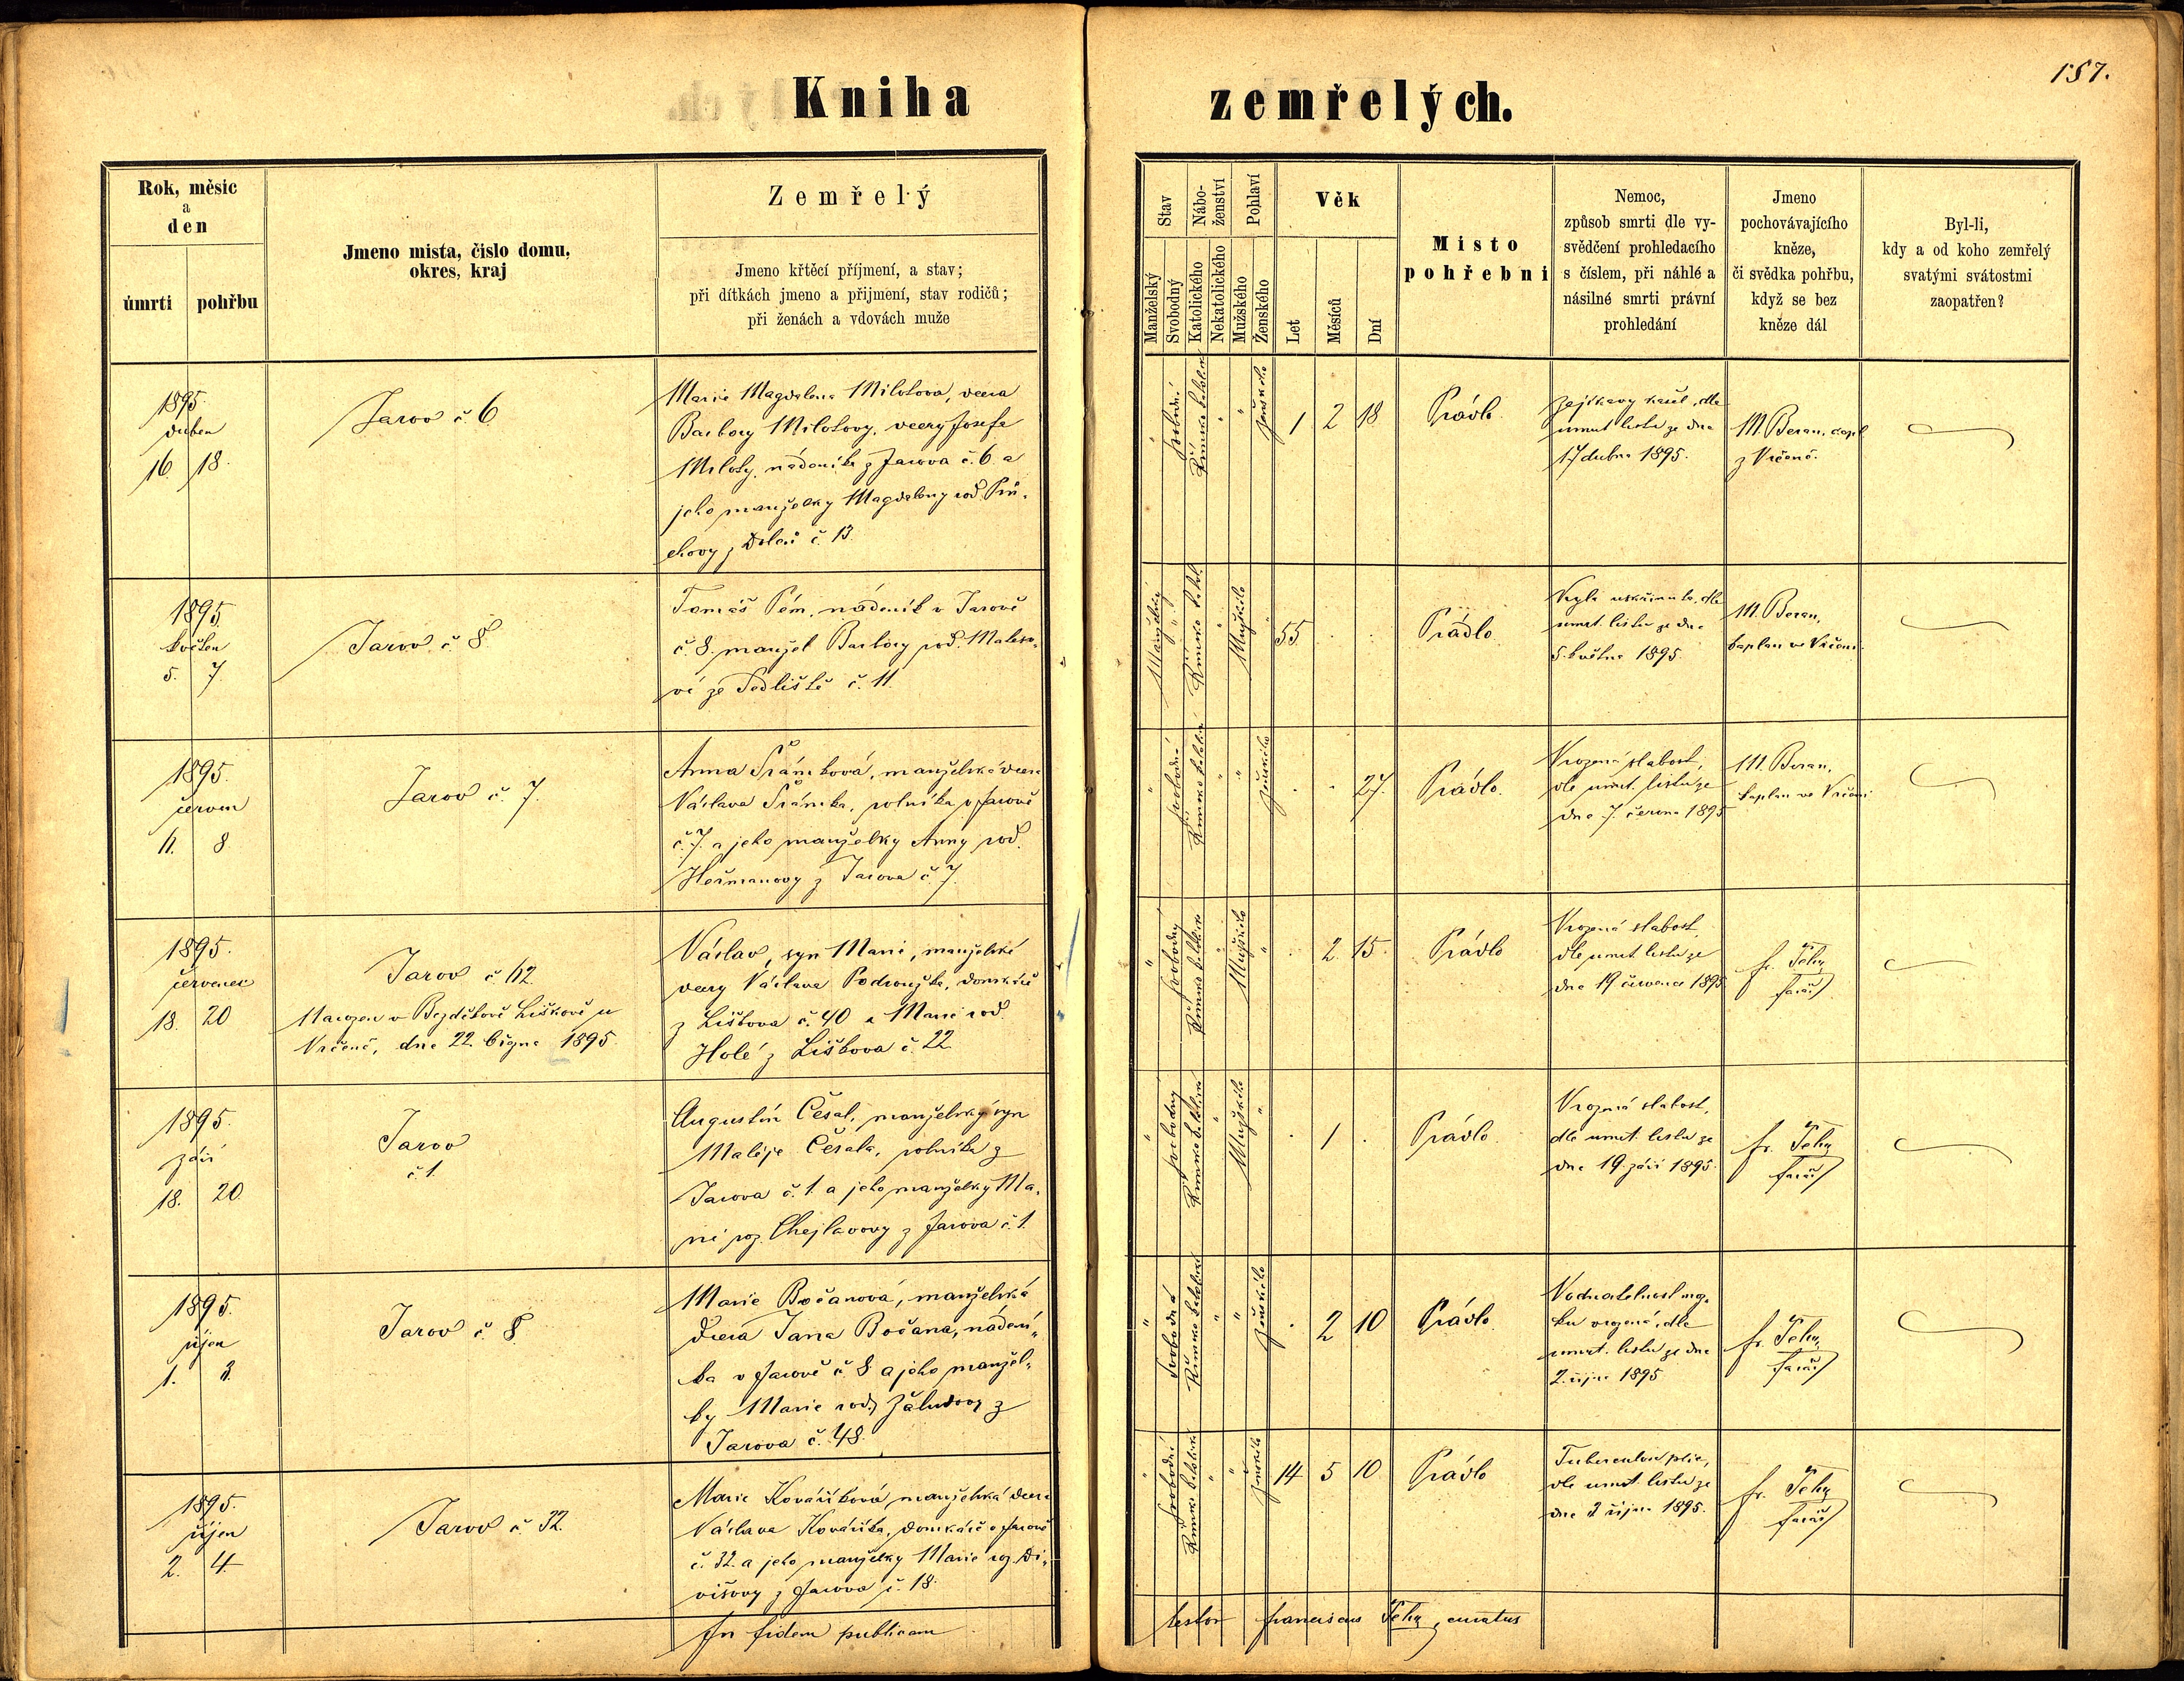 157.
Kniha zemřelých.
Rok, měsíc
a
den
úmrtí pohřbu
Jmeno mista, čislo domu,
okres, kraj
Zemřelý
Jmeno křtěcí příjmení, a stav;
při dítkách jmeno a přijmení, stav rodičů;
při ženách a vdovách muže
Stav
Manželský
Svobodný
Nábo-
ženství
Katolického
Nekatolického
Pohlaví
Mužského
Ženského
Věk
Let
Měsíců
Dní
Misto
pohřebni
Nemoc,
způsob smrti dle vy-
svědčení prohledacího
s číslem, při náhlé a
násilné smrti právní
prohledání
Jmeno
pochovávajícího
kněze,
či svědka pohřbu,
když se bez
kněze dál
Byl-li,
kdy a od koho zemřelý
svatými svátostmi
zaopatřen?
1895.
duben
16. 18.
Jarov č. 6
Marie Magdalena Milotova, dcera
Barbory Milotovy, dcery Josefa
Miloty, nádeníka z Jarova č. 6. a
jeho manželky Magdaleny rod.
č. 13.
svobodní
Římsko katolické
ženského
1 2 18
Prádlo.
kašel, dle
úmrt. listu ze dne
17 dubna 1895.
M. Beran, capl.
z Vrčeně.
1895.
květen
5. 7.
Jarov č. 8
Tomáš nádeník v Jarově
č. 8. manžel Barbory rod.
ze Sedliště č. 11.
Manželský
Římsko katol.
Mužského
55
Prádlo
dle
úmrt. listu ze dne
5. května 1895.
M. Beran,
kaplan ve Vrčeni.
1895.
červen
11. 8
Jarov č. 7.
Anna manželská dcera
Václava rolníka v Jarově
č. 7. a jeho manželky Anny rod.
Heřmanovy z Jarova č. 7.
svobodní
Římsko katolické
ženského
27.
Prádlo.
Vrozená slabost,
dle úmrt. listu ze
dne 7. června 1895
M. Beran,
kaplan ve Vrčeni
1895.
červenec
18. 20
Jarov č. 62.
Narozen v Bezděkově Liškově u
Vrčeně, dne 22. 1895.
Václav, syn Marie, manželské
dcery Václava Podroužka, domkáře
z Liškova č. 40 a Marie rod.
Holé z Liškova č. 22.
svobodný
Římsko katolické
Mužského
2. 15.
Prádlo
Vrozená slabost,
dle úmrt. listu ze
dne 19 července 1895
fr. Tehy
farář
1895.
září
18. 20.
Jarov
č. 1.
Augustin Česal, manželský syn
Matěje Česala, rolníka z
Jarova č. 1. a jeho manželky Ma-
rie roz. Chejlavovy z Jarova č. 1.
svobodný
Římsko katolické
Mužského
1
Prádlo.
Vrozená slabost,
dle úmrt. listu ze
dne 19. září 1895.
fr. Tehy
farář
1895.
říjen
1. 3.
Jarov č. 8
Marie Bočanová, manželská
dcera Jana Bočana, nádení-
ka v Jarově č. 8 a jeho manžel-
ky Marie rod. Žaludovy z
Jarova č. 48.
Svobodná
Římsko katolické
ženského
2 10
Prádlo
Vodnatelnost moz-
ku vrozená, dle
úmrt. listu ze dne
2. října 1895
fr. Tehy,
farář
1895.
říjen
2. 4.
Jarov č. 32.
Marie Kovaříková, manželská dcera
Václava Kovaříka, domkáře v Jarově
č. 32. a jeho manželky Marie roz. Di-
višovy z Jarova č. 18.
svobodní
Římsko katolické
ženského
14 5 10
Prádlo
Tuberculosa plic,
dle úmrt. listu ze
dne 3 října 1895.
fr. Tehy
farář
In fidem publicam
testor franciscus Tehy, curatus